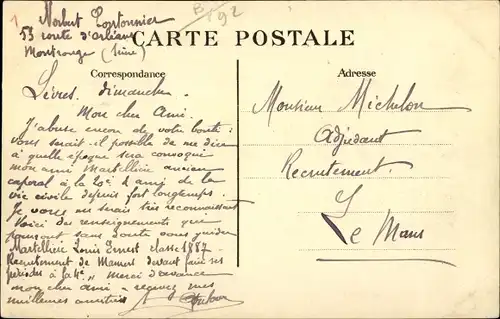 1
B
192
Norbert
53 route d'Orléans
Montrouge (Seine)
CARTE POSTALE
Correspondance
Adresse
Sèvres. Dimanche.
Mon cher Ami.
J'abuse encor de votre bonté :
vous serait-il possible de me dire
à quelle époque sera convoqué
mon ami Martellière ancien
caporal à la 20e & ami de la
vie civile depuis fort longtemps.
Je vous en serais très reconnaissant
Voici des renseignements qui
pourront sans doute vous guider
Martellière Louis Ernest classe 1887 -
Recrutement de Mamers devant faire ses
périodes à la 4e " merci d'avance
mon cher ami - recevez mes
meilleures amitiés
Monsieur Michelon
Adjudant
Recrutement
Le Mans